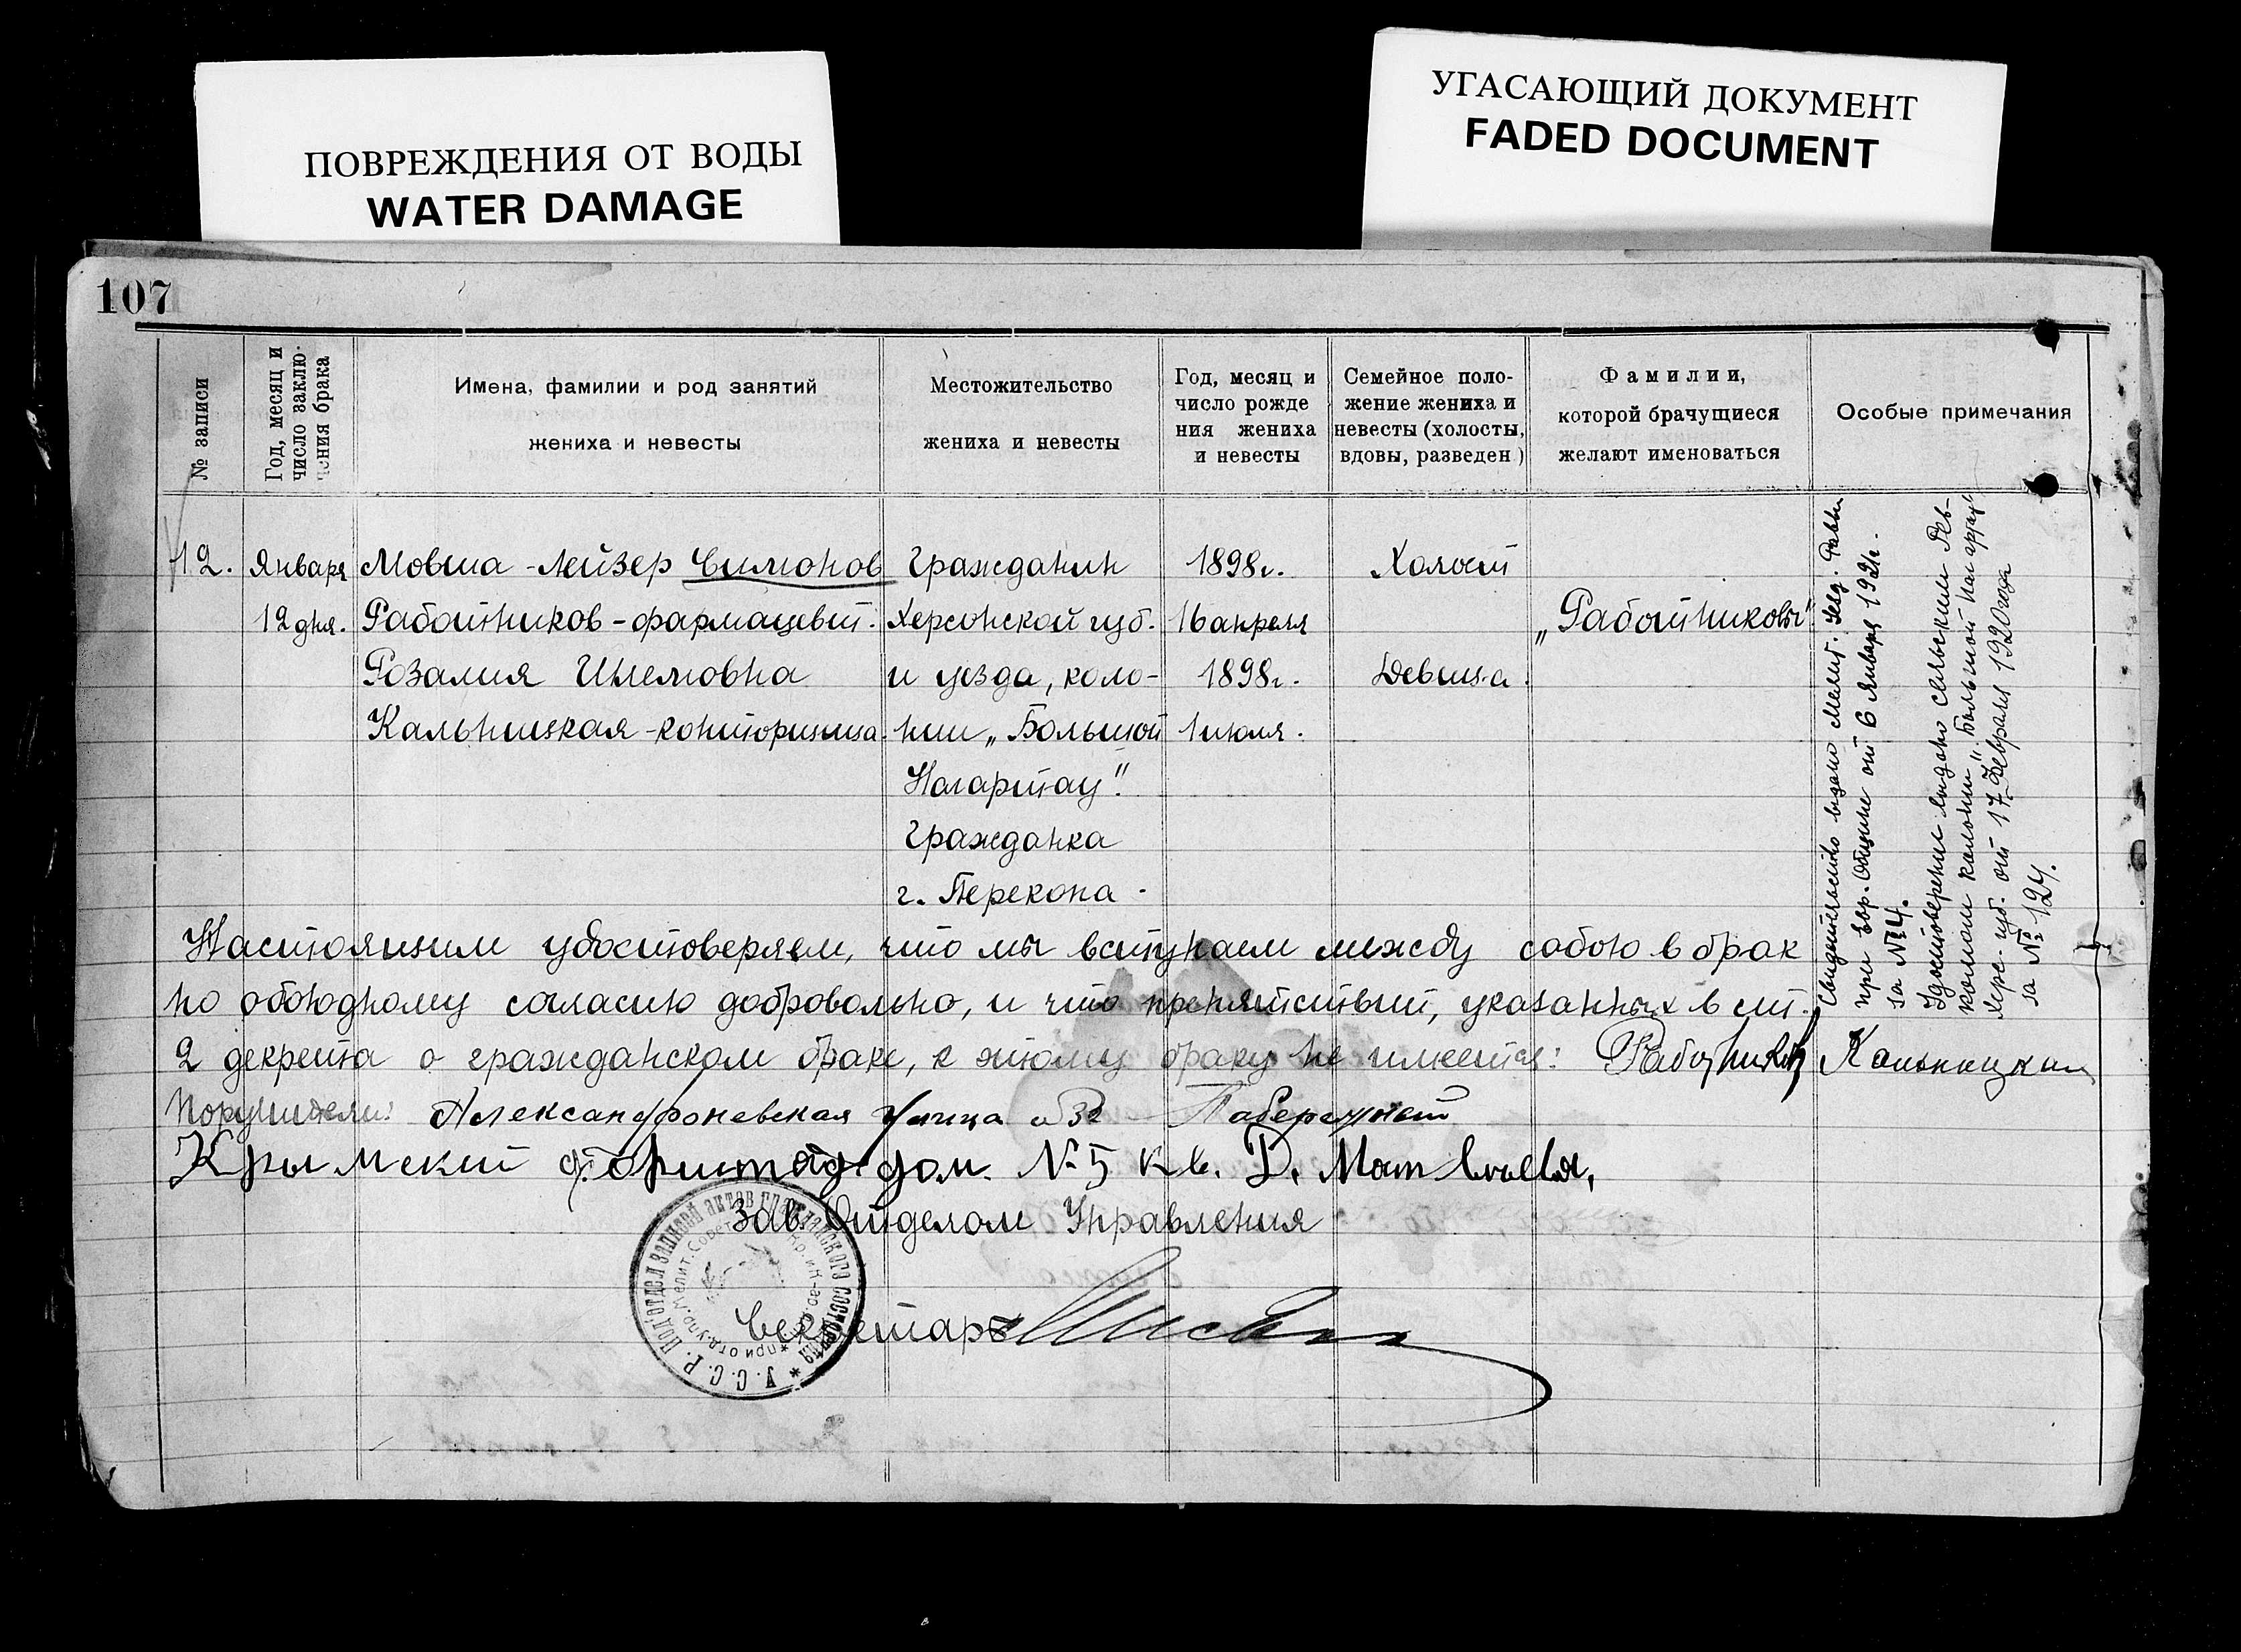 ПОВРЕЖДЕНИЯ ОТ ВОДЫ
WATER DAMAGE
УГАСАЮЩИЙ ДОКУМЕНТ
FADED DOCUMENT
107
№ записи
Год, месяц и
число заклю-
чения брака
Имена, фамилии и род занятий
жениха и невесты
Местожительство
жениха и невесты
Год, месяц и
число рожде
ния жениха
и невесты
Семейное поло-
жение жениха и
невесты (холосты,
вдовы, разведен)
Фамилии,
которой брачущиеся
желают именоваться
Особые примечания
12.
Января
12 дня.
Мовша-Лейзер Симонов
Работников-фармацевт.
Розалия Шлемовна
Кальницкая-конторщица.
Гражданин
Херсонской губ.
и уезда, коло-
нии „Большой
Нагартау"
Гражданка
г. Перекопа.
1898г.
16 апреля
1898г.
1 июля.
Холост
Девица.
„Работниковы"
Свидетельство выдано Мелит. Уезд. Равви.
при Евр. Общине от 6 Января 1921г.
за № 4.
Удостоверение выдано сельским Рев-
комом колонии „Большой Нагартау"
Херс. губ. от 17 Февраля 1920 года
за № 124.
Настоящим удостоверяем, что мы вступаем между собою в брак
по обоюдному согласию добровольно, и что препятствий, указанных в ст.
2 декрета о гражданском браке, к этому браку не имеется: Работников Кальницкая
Поручители: Александроневская Улица 32
Крымский дом. № 5 кв. Д. Матвеева,
Зав. Отделом Управления
Секретарь
У.С.С.Р. Подотдел записей актов гражданского состояния